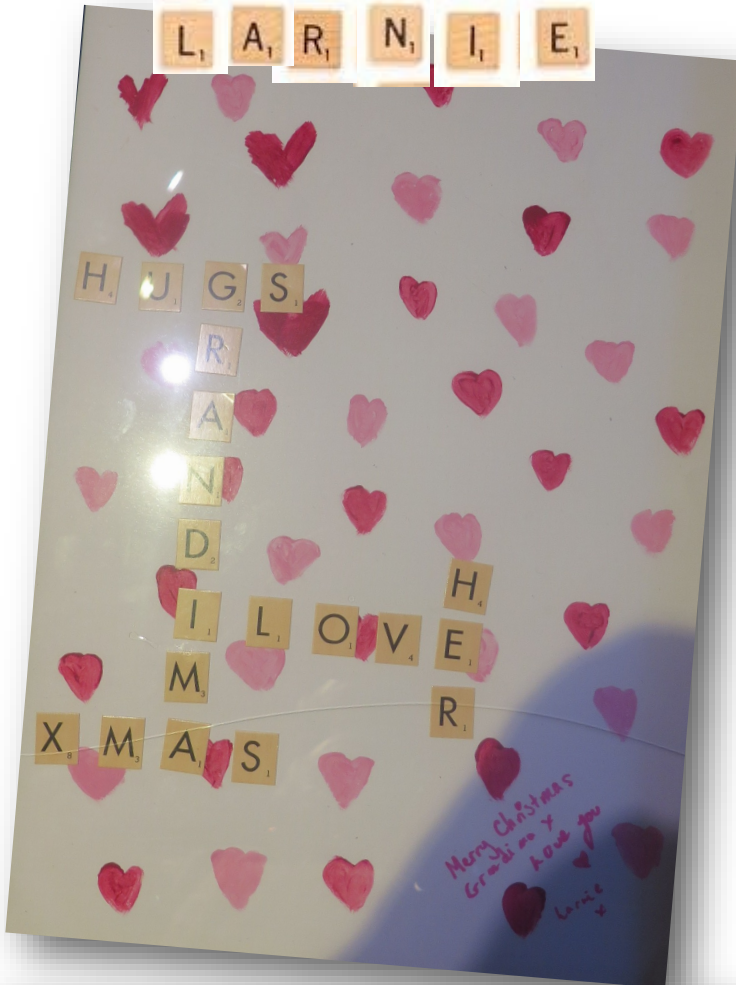 LARNIE
HUGS
GRANDIMA
I LOVE
HER
XMAS
Merry Christmas
Grandima x
Love you
Larnie
x